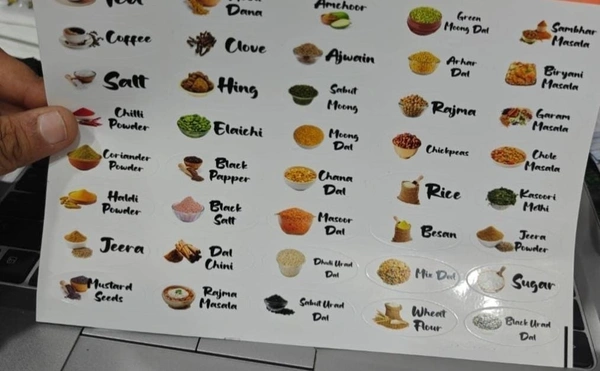 Dana
Amchoor
Green
Moong Dal
Sambhar
Masala
Coffee
Clove
Ajwain
Arhar
Dal
Biryani
Masala
Salt
Hing
Sabut
Moong
Rajma
Garam
Masala
Chilli
Powder
Elaichi
Moong
Dal
Chickpeas
Chole
Masala
Coriander
Powder
Black
Papper
Chana
Dal
Rice
Kasoori
Methi
Haldi
Powder
Black
Salt
Masoor
Dal
Besan
Jeera
Powder
Jeera
Dal
Chini
Dhuli Urad
Dal
Mix Dal
Sugar
Mustard
Seeds
Rajma
Masala
Sabut Urad
Dal
Wheat
Flour
Black Urad
Dal